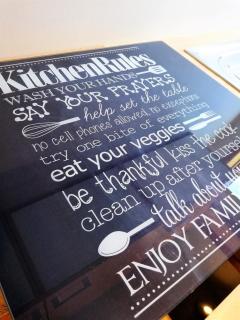 Kitchen Rules
WASH YOUR HANDS
SAY YOUR PRAYERS
help set the table
no cell phones allowed no exceptions
try one bite of everything
eat your veggies
be thankful kiss the
clean up after yourself
talk about your
ENJOY FAMILY